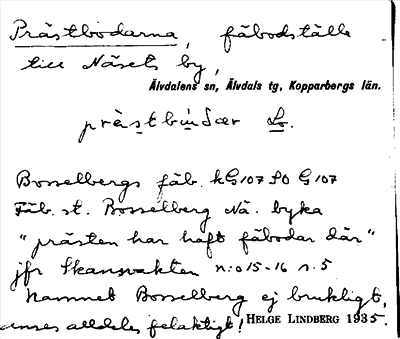 Prästbodarna, fäbodställe
till Näsets by,
Älvdalens sn, Älvdals tg, Kopparbergs län.
prästbúðær Lo.
Bosselbergs fäb. kG107 SO G107
Fäb. st. Bosselberg Nä. byka
"prästen har haft fäbodar där"
jfr Skansvakten n:o 15-16 s. 5
Namnet Bosselberg ej brukligt,
anses alldeles felaktigt!
HELGE LINDBERG 1935.